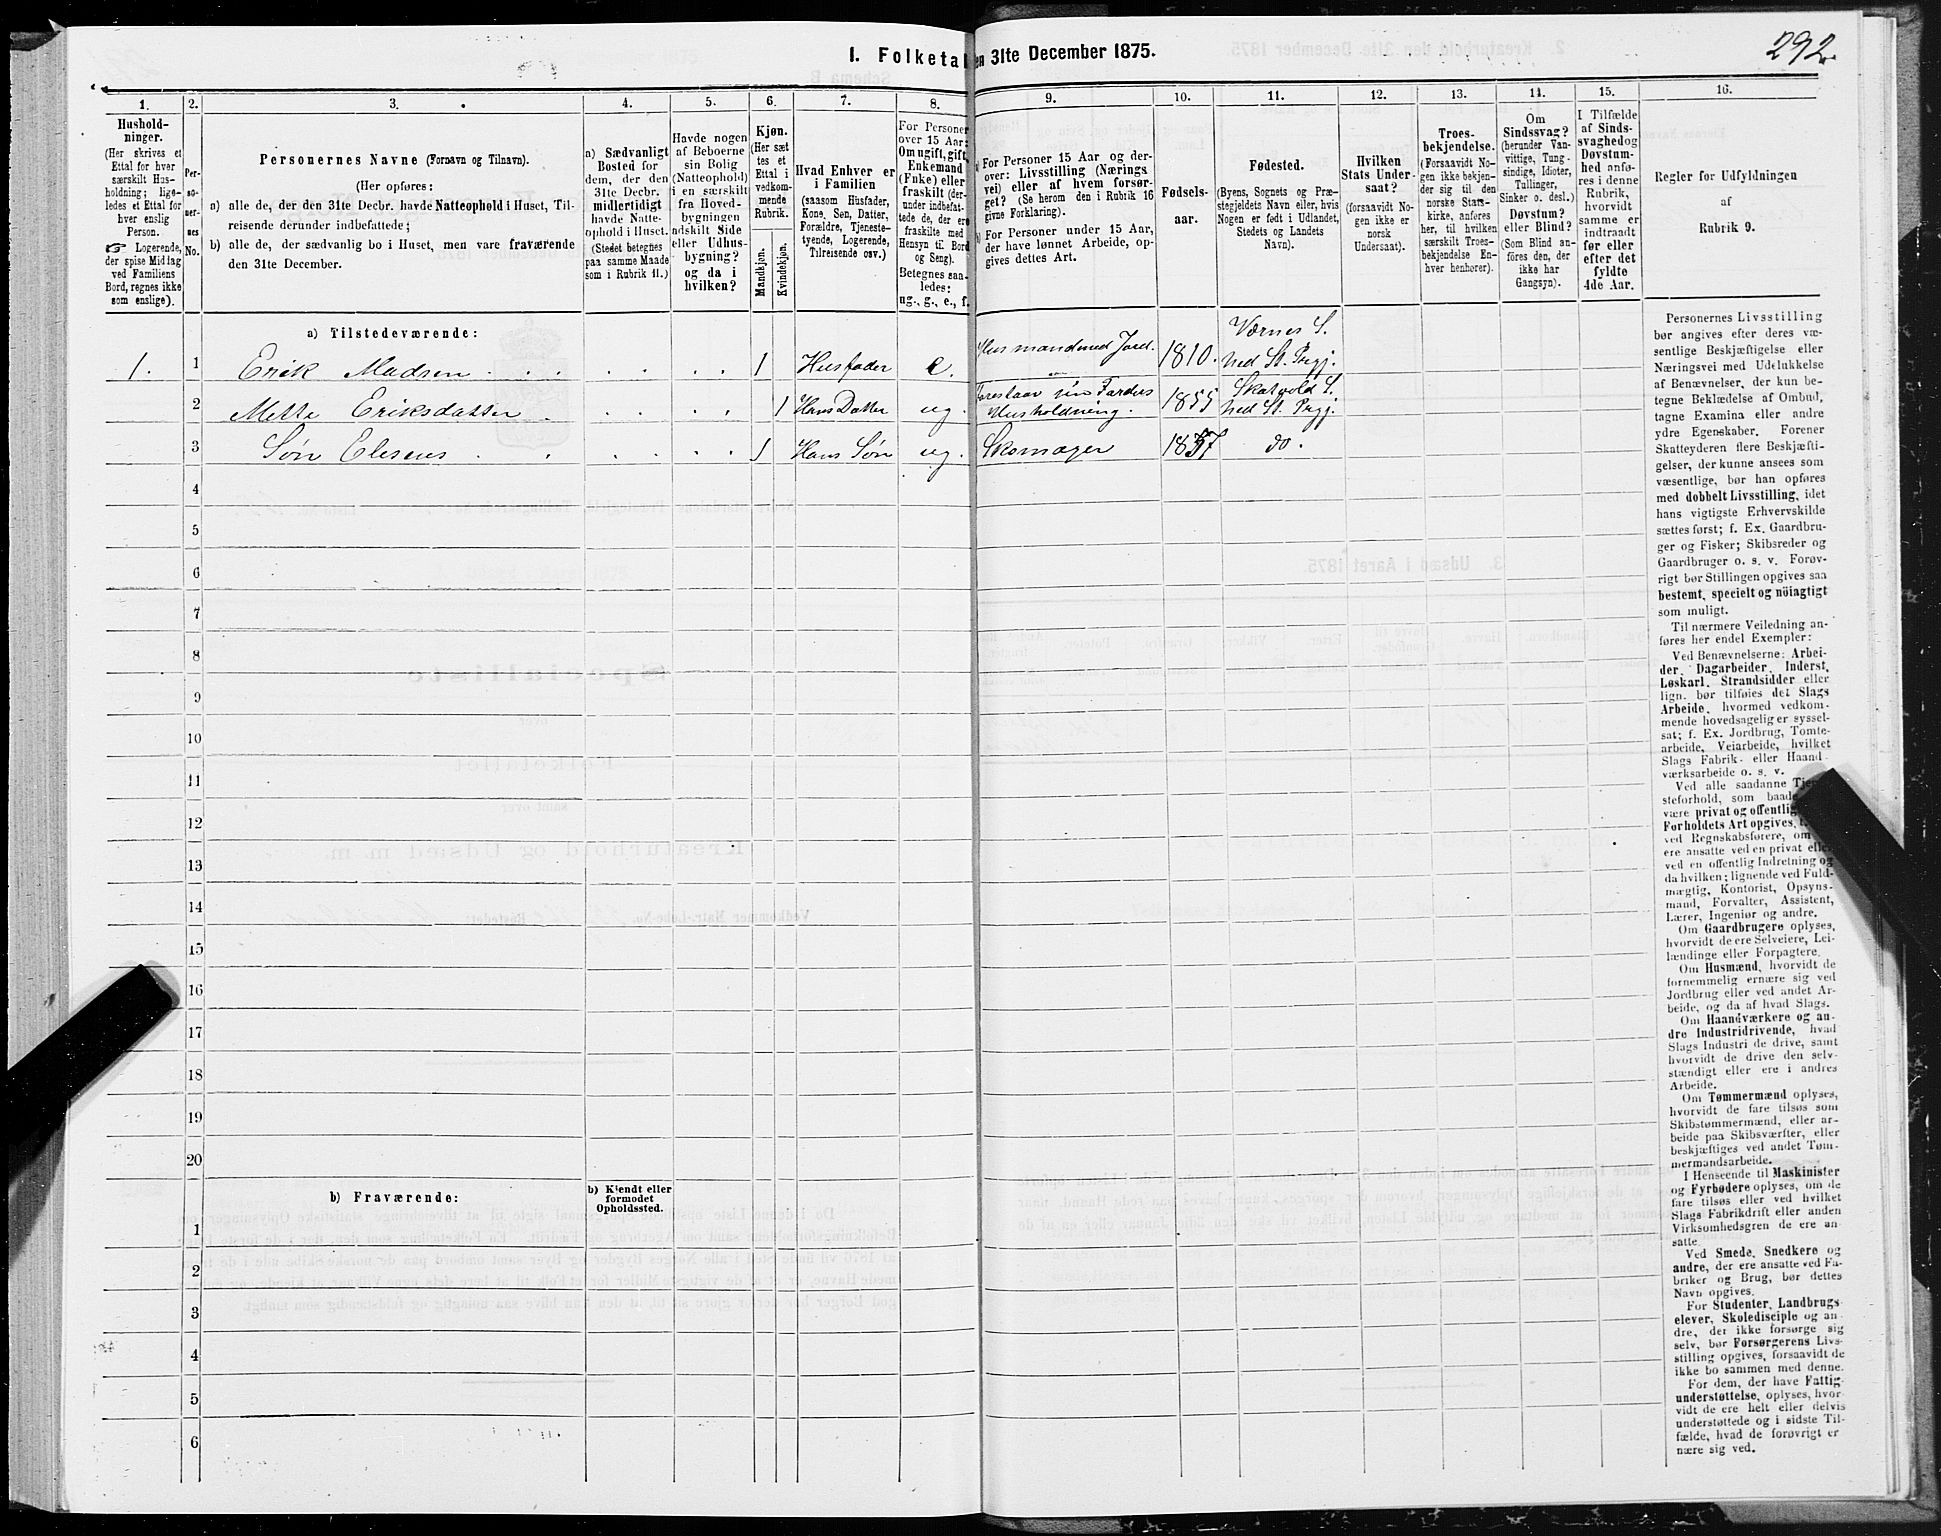 292.
I. Folketal
en 31te December 1875.
1.
2.
3.
4.
5.
6.
7.
8.
9.
10.
11.
12.
13.
14.
15.
16.
Hushold-
ninger.
(Her skrives et
Ettal for hver
særskilt Hus-
holdning; lige-
ledes et Ettal for
hver enslig
Person.
☞ Logerende,
der spise Middag
ved Familiens
Bord, regnes ikke
som enslige).
Per-
so-
ner-
nes
No.
Personernes Navne (Fornavn og Tilnavn).
(Her opføres:
a) alle de, der den 31te Decbr. havde Natteophold i Huset, Til-
reisende derunder indbefattede;
b) alle de, der sædvanlig bo i Huset, men vare fraværende
den 31te December.
a) Sædvanligt
Bosted for
dem, der den
31te Decbr.
midlertidigt
havde Natte-
ophold i Huset.
(Stedet betegnes
paa samme Maade
som i Rubrik 11.)
Havde nogen
af Beboerne
sin Bolig
(Natteophold)
i en særskilt
fra Hoved-
bygningen
adskilt Side
eller Udhus-
bygning?
og da i
hvilken?
Kjøn.
(Her sæt
tes et
Ettal i
vedkom-
mende
Rubrik.
Mandkjøn.
Kvindekjøn.
Hvad Enhver er
i Familien
(saasom Husfader,
Kone, Søn, Datter,
Forældre, Tjeneste-
tyende, Logerende,
Tilreisende osv.)
For Personer
over 15 Aar:
Om ugift, gift,
Enkemand
(Enke) eller
fraskilt (der-
under indbefat-
tede de, der ere
fraskilte med
Hensyn til Bord
og Seng).
Betegnes saa-
ledes:
ug., g., e., f.
a) For Personer 15 Aar og der-
over: Livsstilling (Nærings
vei) eller af hvem forsør-
get? (Se herom den i Rubrik 16
givne Forklaring).
b) For Personer under 15 Aar,
der have lønnet Arbeide, op-
gives dettes Art.
Fødsels-
aar.
Fødested.
(Byens, Sognets og Præ-
stegjeldets Navn eller, hvis
Nogen er født i Udlandet,
Stedets og Landets
Navn).
Hvilken
Stats Under-
saat?
(forsaavidt No-
gen ikke er
norsk
Undersaat).
Troes-
bekjendelse.
(Forsaavidt No-
gen ikke bekjen-
der sig til den
norske Stats-
kirke, anføres
her, til hvilken
særskilt Troes-
bekjendelse En-
hver henhører).
Om
Sindssvag?
(herunder Van-
vittige, Tung-
sindige, Idioter,
Tullinger,
Sinker o. desl.)
Døvstum?
eller Blind?
(Som Blind an-
føres den, der
ikke har
Gangsyn).
I Tilfælde
af Sinds-
svaghed og
Døvstum-
hed anfø-
res i denne
Rubrik,
hvorvidt
samme er
indtraadt
før eller
efter det
fyldte
4de Aar.
Regler for Udfyldningen
af
Rubrik 9.
a) Tilstedeværende:
1. 1 Erik Madsen 1 Husfader e. Husmand med Jord. 1810. Værnes S.
Ned St. Prgj.
2 Mette Eriksdatter 1 Hans Datter ug. Forestaar sin Faders
Husholdning. 1855 Skatvold S.
Ned St. Prgj.
3 Søn Eleseus 1 Hans Søn ug. Skomager 1857 do.
4
5
6
7
8
9
10
11
12
13
14
15
16
17
18
19
20
b) Fraværende:
b) Kjendt eller
formodet
Opholdssted.
1
2
3
4
5
6
Personernes Livsstilling
bør angives efter deres væ-
sentlige Beskjæftigelse eller
Næringsvei med Udelukkelse
af Benævnelser, der kun be-
tegne Beklædelse af Ombud,
tagne Examina eller andre
ydre Egenskaber. Forener
Skatteyderen flere Beskjæfti-
gelser, der kunne ansees som
væsentlige, bør han opføres
med dobbelt Livsstilling, idet
hans vigtigste Erhvervskilde
sættes først; f. Ex. Gaardbru-
ger og Fisker; Skibsreder og
Gaardbruger o. s. v. Forøv-
rigt bør Stillingen opgives saa
bestemt, specielt og nøiagtigt
som muligt.
Til nærmere Veiledning an-
føres her endel Exempler:
Ved Benævnelserne: Arbei-
der, Dagarbeider, Inderst,
Løskarl, Strandsidder eller
lign. bør tilføies det Slags
Arbeide, hvormed vedkom-
mende hovedsagelig er syssel-
sat; f. Ex. Jordbrug, Tomte-
arbeide, Veiarbeide, hvilket
Slags Fabrik- eller Haand-
værksarbeide o. s. v.
Ved alle saadanne Tje
steforhold, som baade
være privat og offentlig
Forholdets Art opgives,
ved Regnskabsførere, om
ere ansatte ved en privat elle
ved en offentlig Indretning og
da hvilken; lignende ved Fuld-
mægtig, Kontorist, Opsyns-
mand, Forvalter, Assistent,
Lærer, Ingeniør og andre.
Om Gaardbrugere oplyses,
hvorvidt de ere Selveiere, Lei-
lændinge eller Forpagtere.
Om Husmænd, hvorvidt de
fornemmelig ernære sig ved
Jordbrug eller ved andet Ar-
beide, og da af hvad Slags.
Om Haandværkere og an-
dre Industridrivende, hvad
Slags Industri de drive, samt
hvorvidt de drive den selv-
stændigt eller ere i andres
Arbeide.
Om Tømmermænd oplyses,
hvorvidt de fare tilsøs som
Skibstømmermænd, eller ar-
beide paa Skibsværfter, eller
beskjæftiges ved andet Tøm-
mermandsarbeide.
I Henseende til Maskinister
og Fyrbødere oplyses, om de
fare tilsøs eller ved hvilket
Slags Fabrikdrift eller anden
Virksomhedsgren de ere an-
satte.
Ved Smede, Snedkere og
andre, der ere ansatte ved Fa-
briker og Brug, bør dettes
Navn opgives.
For Studenter, Landbrugs-
elever, Skoledisciple og an-
dre, der ikke forsørge sig
selv, bør Forsørgerens Livs-
stilling opgives, forsaavidt de
ikke bo sammen med denne.
For dem, der have Fattig-
understøttelse, oplyses, hvor-
vidt de ere helt eller delvis
understøttede og i sidste Til-
fælde, hvad de forøvrigt er
nære sig ved.